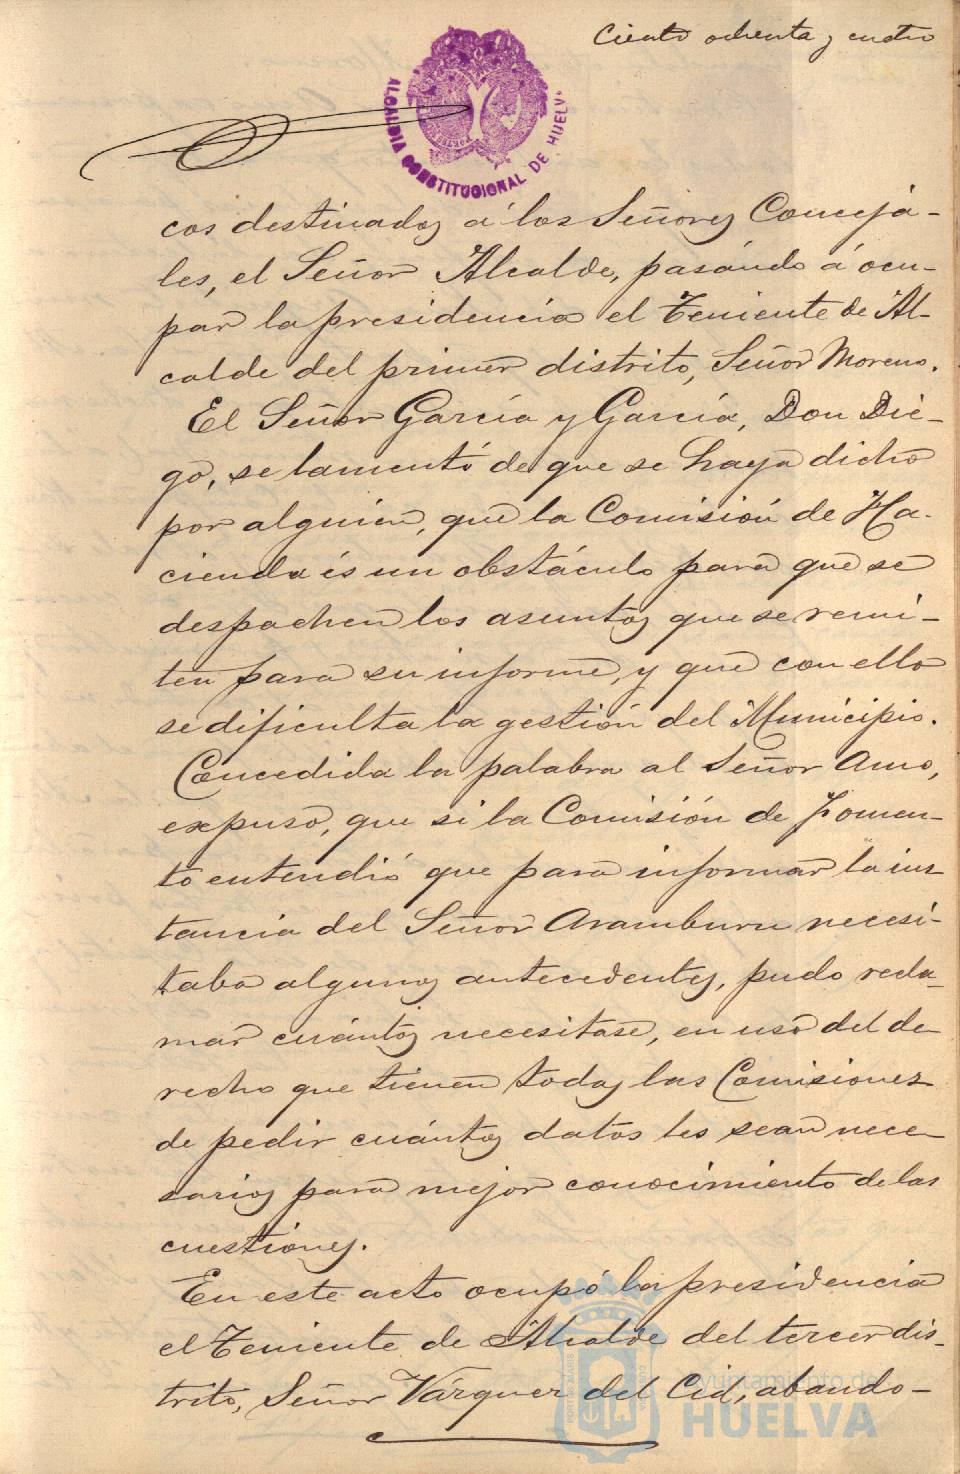 Ciento ochenta y cuatro
ALCALDIA CONSTITUCIONAL DE HUELVA
cos destinados á los Señores Concejá-
les, el Señor Alcalde, pasándo á ocu-
par la presidencia el Teniente de Al-
calde del primer distrito, Señor Moreno.
El Señor García y García, Don Die-
go, se lamentó de que se haya dicho
por alguien, que la Comisión de Ha-
cienda és un obstáculo para que se
despachen los asuntos que se remi-
ten para su informe, y que con ello
se dificulta la gestión del Municipio.
Concedida la palabra al Señor Amo,
expuso, que si la Comisión de Fomen-
to entendió que para informar la ins
tancia del Señor Aramburu necesi-
taba algunos antecedentes, pudo recla-
mar cuántos necesitase, en uso del de
recho que tienen todas las Comisiones
de pedir cuántos datos les sean nece-
sarios para mejor conocimiento de las
cuestiones.
En este acto ocupó la presidencia
el Teniente de Alcalde del tercer dis-
trito, Señor Vázquez del Cid, abando-
Ayuntamiento de
HUELVA